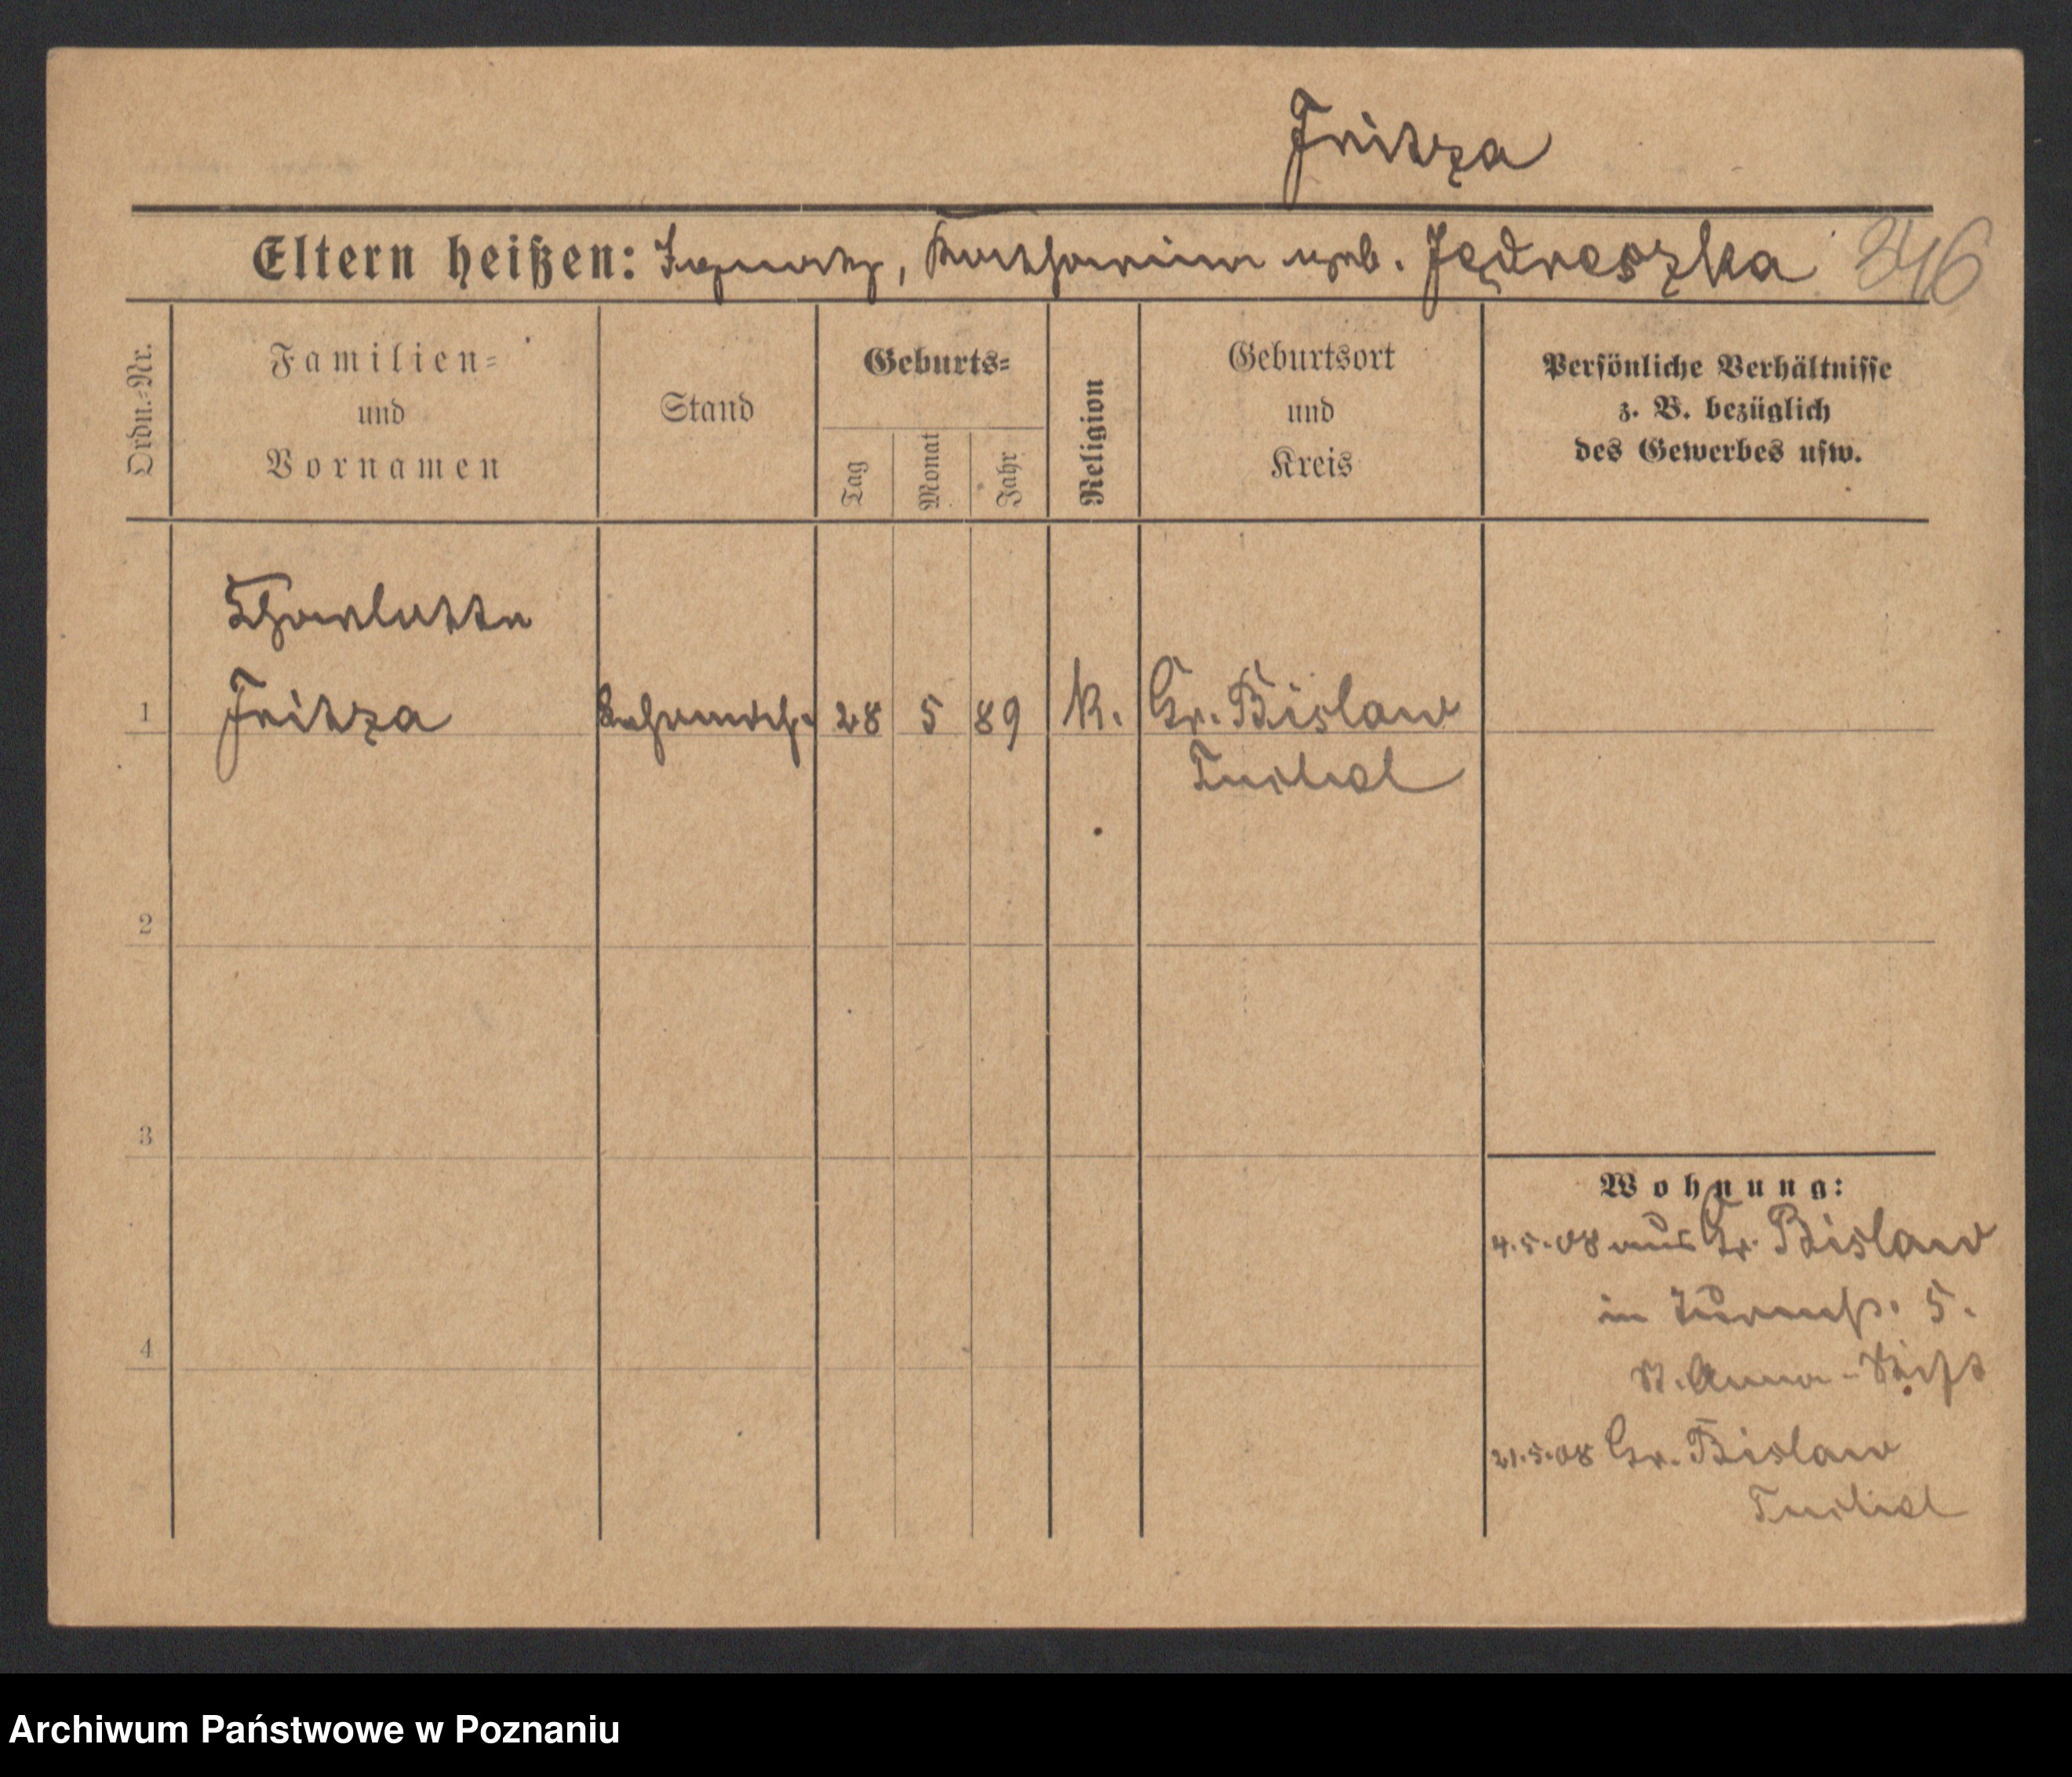 Fritza
Eltern heißen: Ignatz, Katharina geb. Jędreszka 346
Ordn.-Nr.
Familien-
und
Vornamen
Stand
Geburts-
Tag
Monat
Jahr
Religion
Geburtsort
und
Kreis
Persönliche Verhältnisse
z. B. bezüglich
des Gewerbes usw.
Charlotte
1 Fritza 28 5 89 K. Gr. Bislaw
Tuchel
2
3
Wohnung:
4.5.08 aus Gr. Bislaw
in 5.
4 St. Anna-Stift
21.5.08 Gr. Bislaw
Tuchel
Archiwum Państwowe w Poznaniu